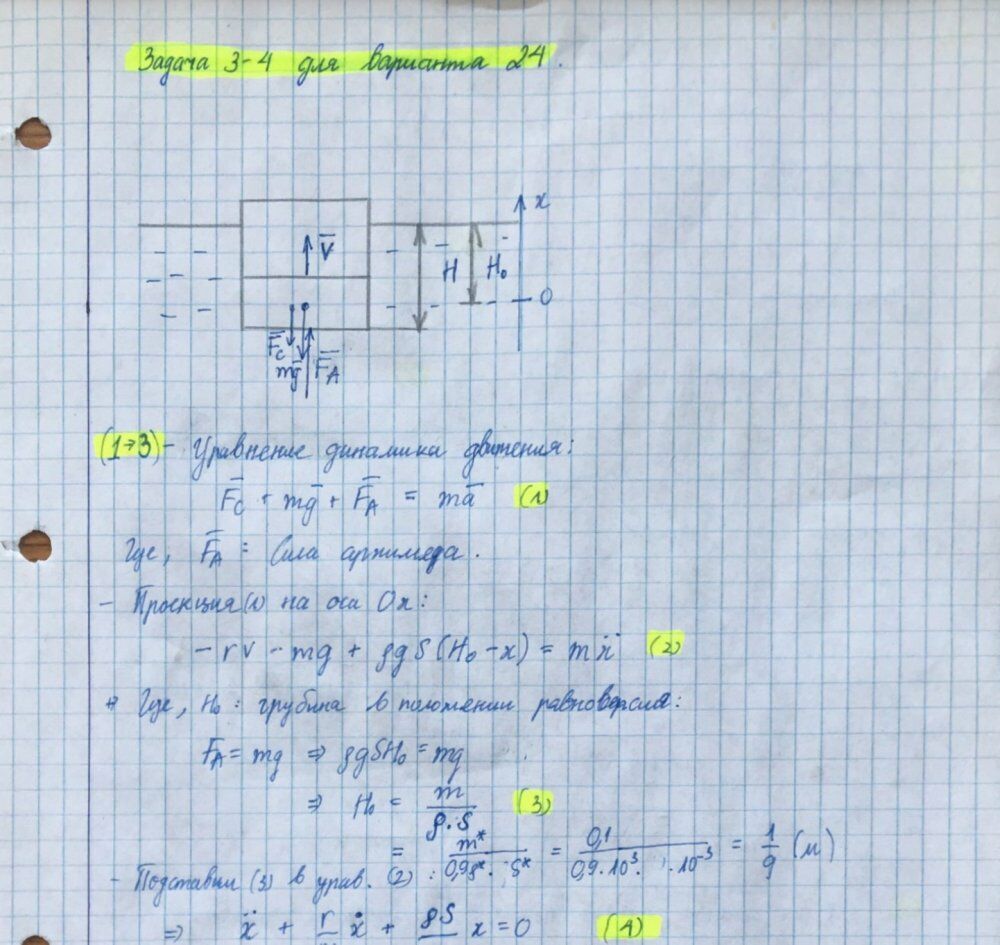 Задача 3-4 для варианта 24.
x
V̅
H
H₀
0
F̅c
mg̅
F̅A
(1→3) - Уравнение динамика движения:
F̅c + mg̅ + F̅A = ma̅ (1)
Где, F̅A = Сила архимеда.
- Проекция (1) на оси Ox:
- rv - mg + ρgS(H₀-x) = mẍ (2)
Где, H₀ : грубина в положении равновесия:
FA = mg ⇒ ρgSH₀ = mg
⇒ H₀ = m / ρ.S (3)
= m* / 0,9ρ*. S* = 0,1 / 0,9.10³. 10⁻³ = 1/9 (м)
- Подставим (3) в урав. (2) :
⇒ ẍ + r ẋ + ρS x = 0 (4)